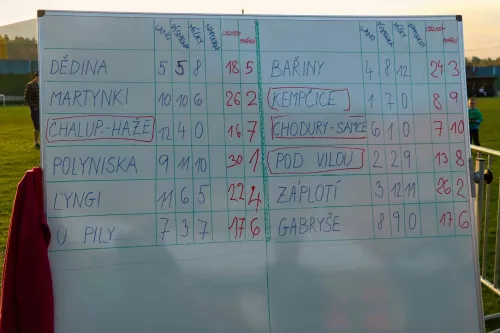 LANO PÍSNIČKA MÍČKY CELKEM POŘADÍ
DĚDINA 5 5 8 18 5
MARTYNKI 10 10 6 26 2
CHALUP.-HAŽE 12 4 0 16 7
POLYNISKA 9 11 10 30 1
LYNGI 11 6 5 22 4
U PILY 7 3 7 17 6
LANO CELKEM POŘADÍ
BAŘINY 4 8 12 24 3
KEMPČICE 1 7 0 8 9
CHODURY-SAMCE 6 1 0 7 10
POD VILOU 2 2 9 13 8
ZÁPLOTÍ 3 12 11 26 2
GABRYŠE 8 9 0 17 6